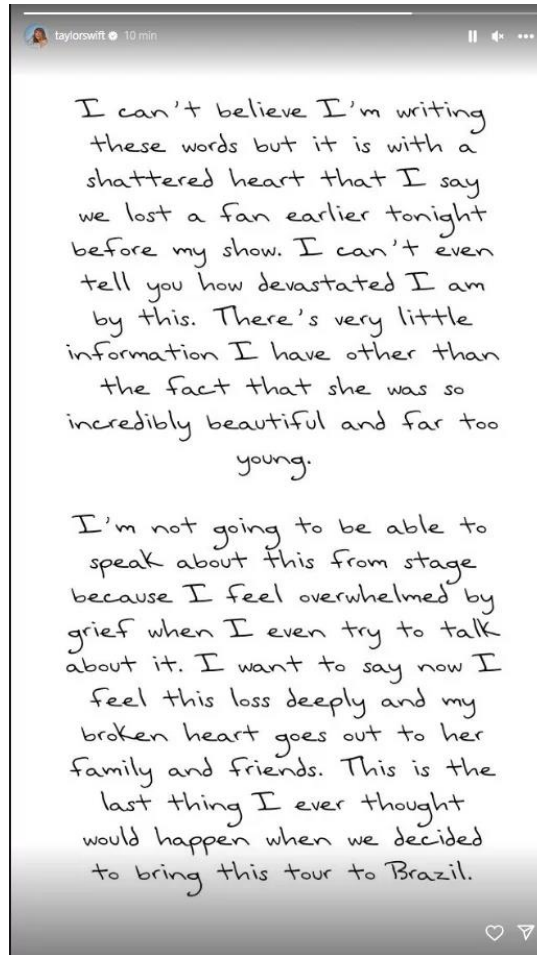 taylorswift 10 min
I can't believe I'm writing
these words but it is with a
shattered heart that I say
we lost a fan earlier tonight
before my show. I can't even
tell you how devastated I am
by this. There's very little
information I have other than
the fact that she was so
incredibly beautiful and far too
young.
I'm not going to be able to
speak about this from stage
because I feel overwhelmed by
grief when I even try to talk
about it. I want to say now I
feel this loss deeply and my
broken heart goes out to her
family and friends. This is the
last thing I ever thought
would happen when we decided
to bring this tour to Brazil.